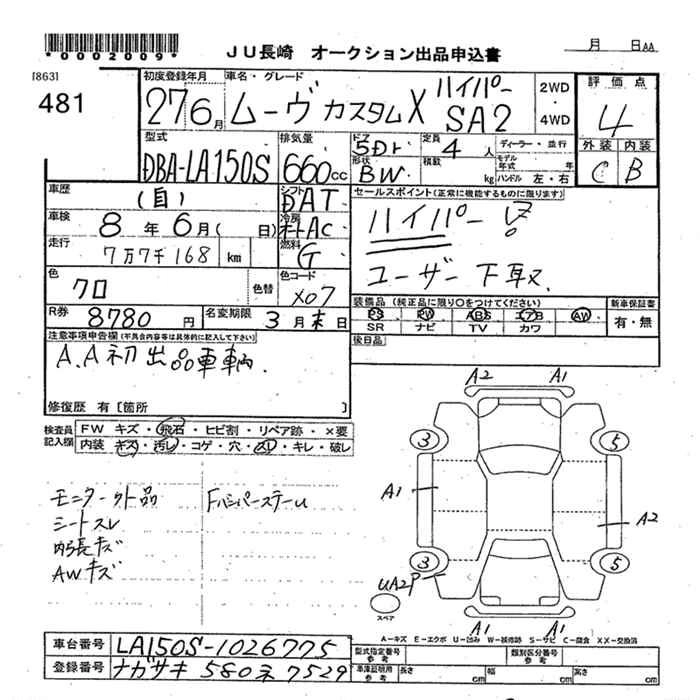 *0002009*
JU長崎 オークション出品申込書
月 日AA
[863]
481
初度登録年月 27 6月
車名・グレード ムーヴ カスタムX ハイパー SA2
2WD・4WD
評価点 4
外装 C 内装 B
型式 DBA-LA150S
排気量 660cc
ドア 5Dr
形状 BW
定員 4人
積載 kg
ディーラー・並行
モデル年式 年
ハンドル 左・右
車歴 (自)
シフト DAT
車検 8年 6月( 日)
冷房 オートAC
走行 7万7千168 km
燃料 G
色 クロ
色替
色コード X07
R券 8780円
名変期限 3月末日
セールスポイント(正常に機能するものに限ります)
ハイパー
ユーザー下取
装備品(純正品に限り○をつけてください) 新車保証書
PS PW ABS エアB AW 有・無
SR ナビ TV カワ
後日品
注意事項申告欄(不具合内容等は具体的に記入して下さい)
A.A初出品車輌.
修復歴 有[箇所 ]
検査員記入欄
FW キズ・飛石・ヒビ割・リペア跡・×要
内装 キズ・汚レ・コゲ・穴・スレ・キレ・破レ
モニター外品 Fバンパーステー凵
シートスレ
内張キズ
AWキズ
A2 A1
3 5
A1 A2
3 5
UA2P
スペア
A1 A1
A-キズ E-エクボ U-凹み W-補修跡 S-サビ C-腐食 XX-交換済
車台番号 LA150S-1026775
登録番号 ナガサキ 580 ネ 7529
型式指定番号 参考
類別区分番号 参考
車庫証明用 参考 長さ cm 幅 cm 高さ cm